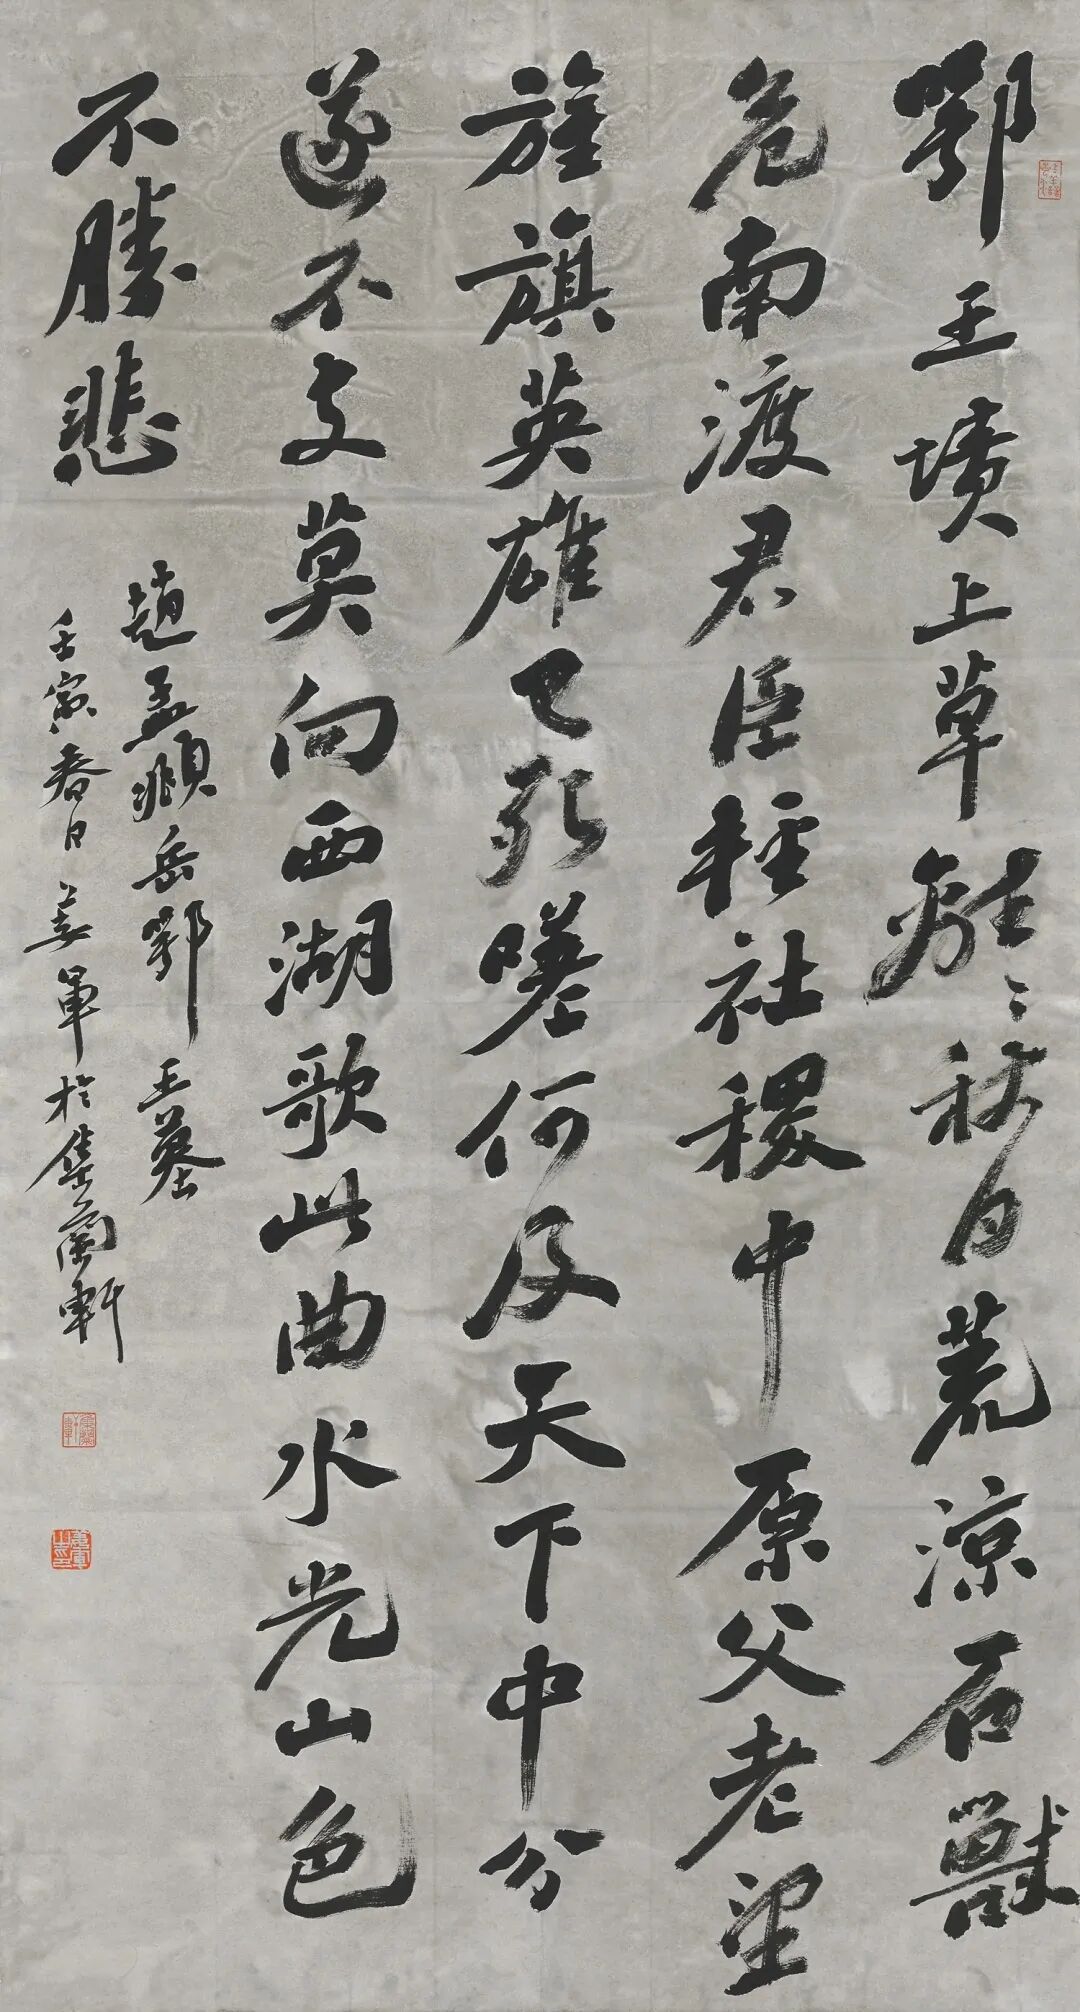 鄂王墳上草離〻秋日荒涼石獸
危南渡君臣輕社稷中原父老望
旌旗英雄已死嗟何及天下中分
遂不支莫向西湖歌此曲水光山色
不勝悲
趙孟頫岳鄂王墓
壬寅春日姜軍於集蘭軒
集蘭軒